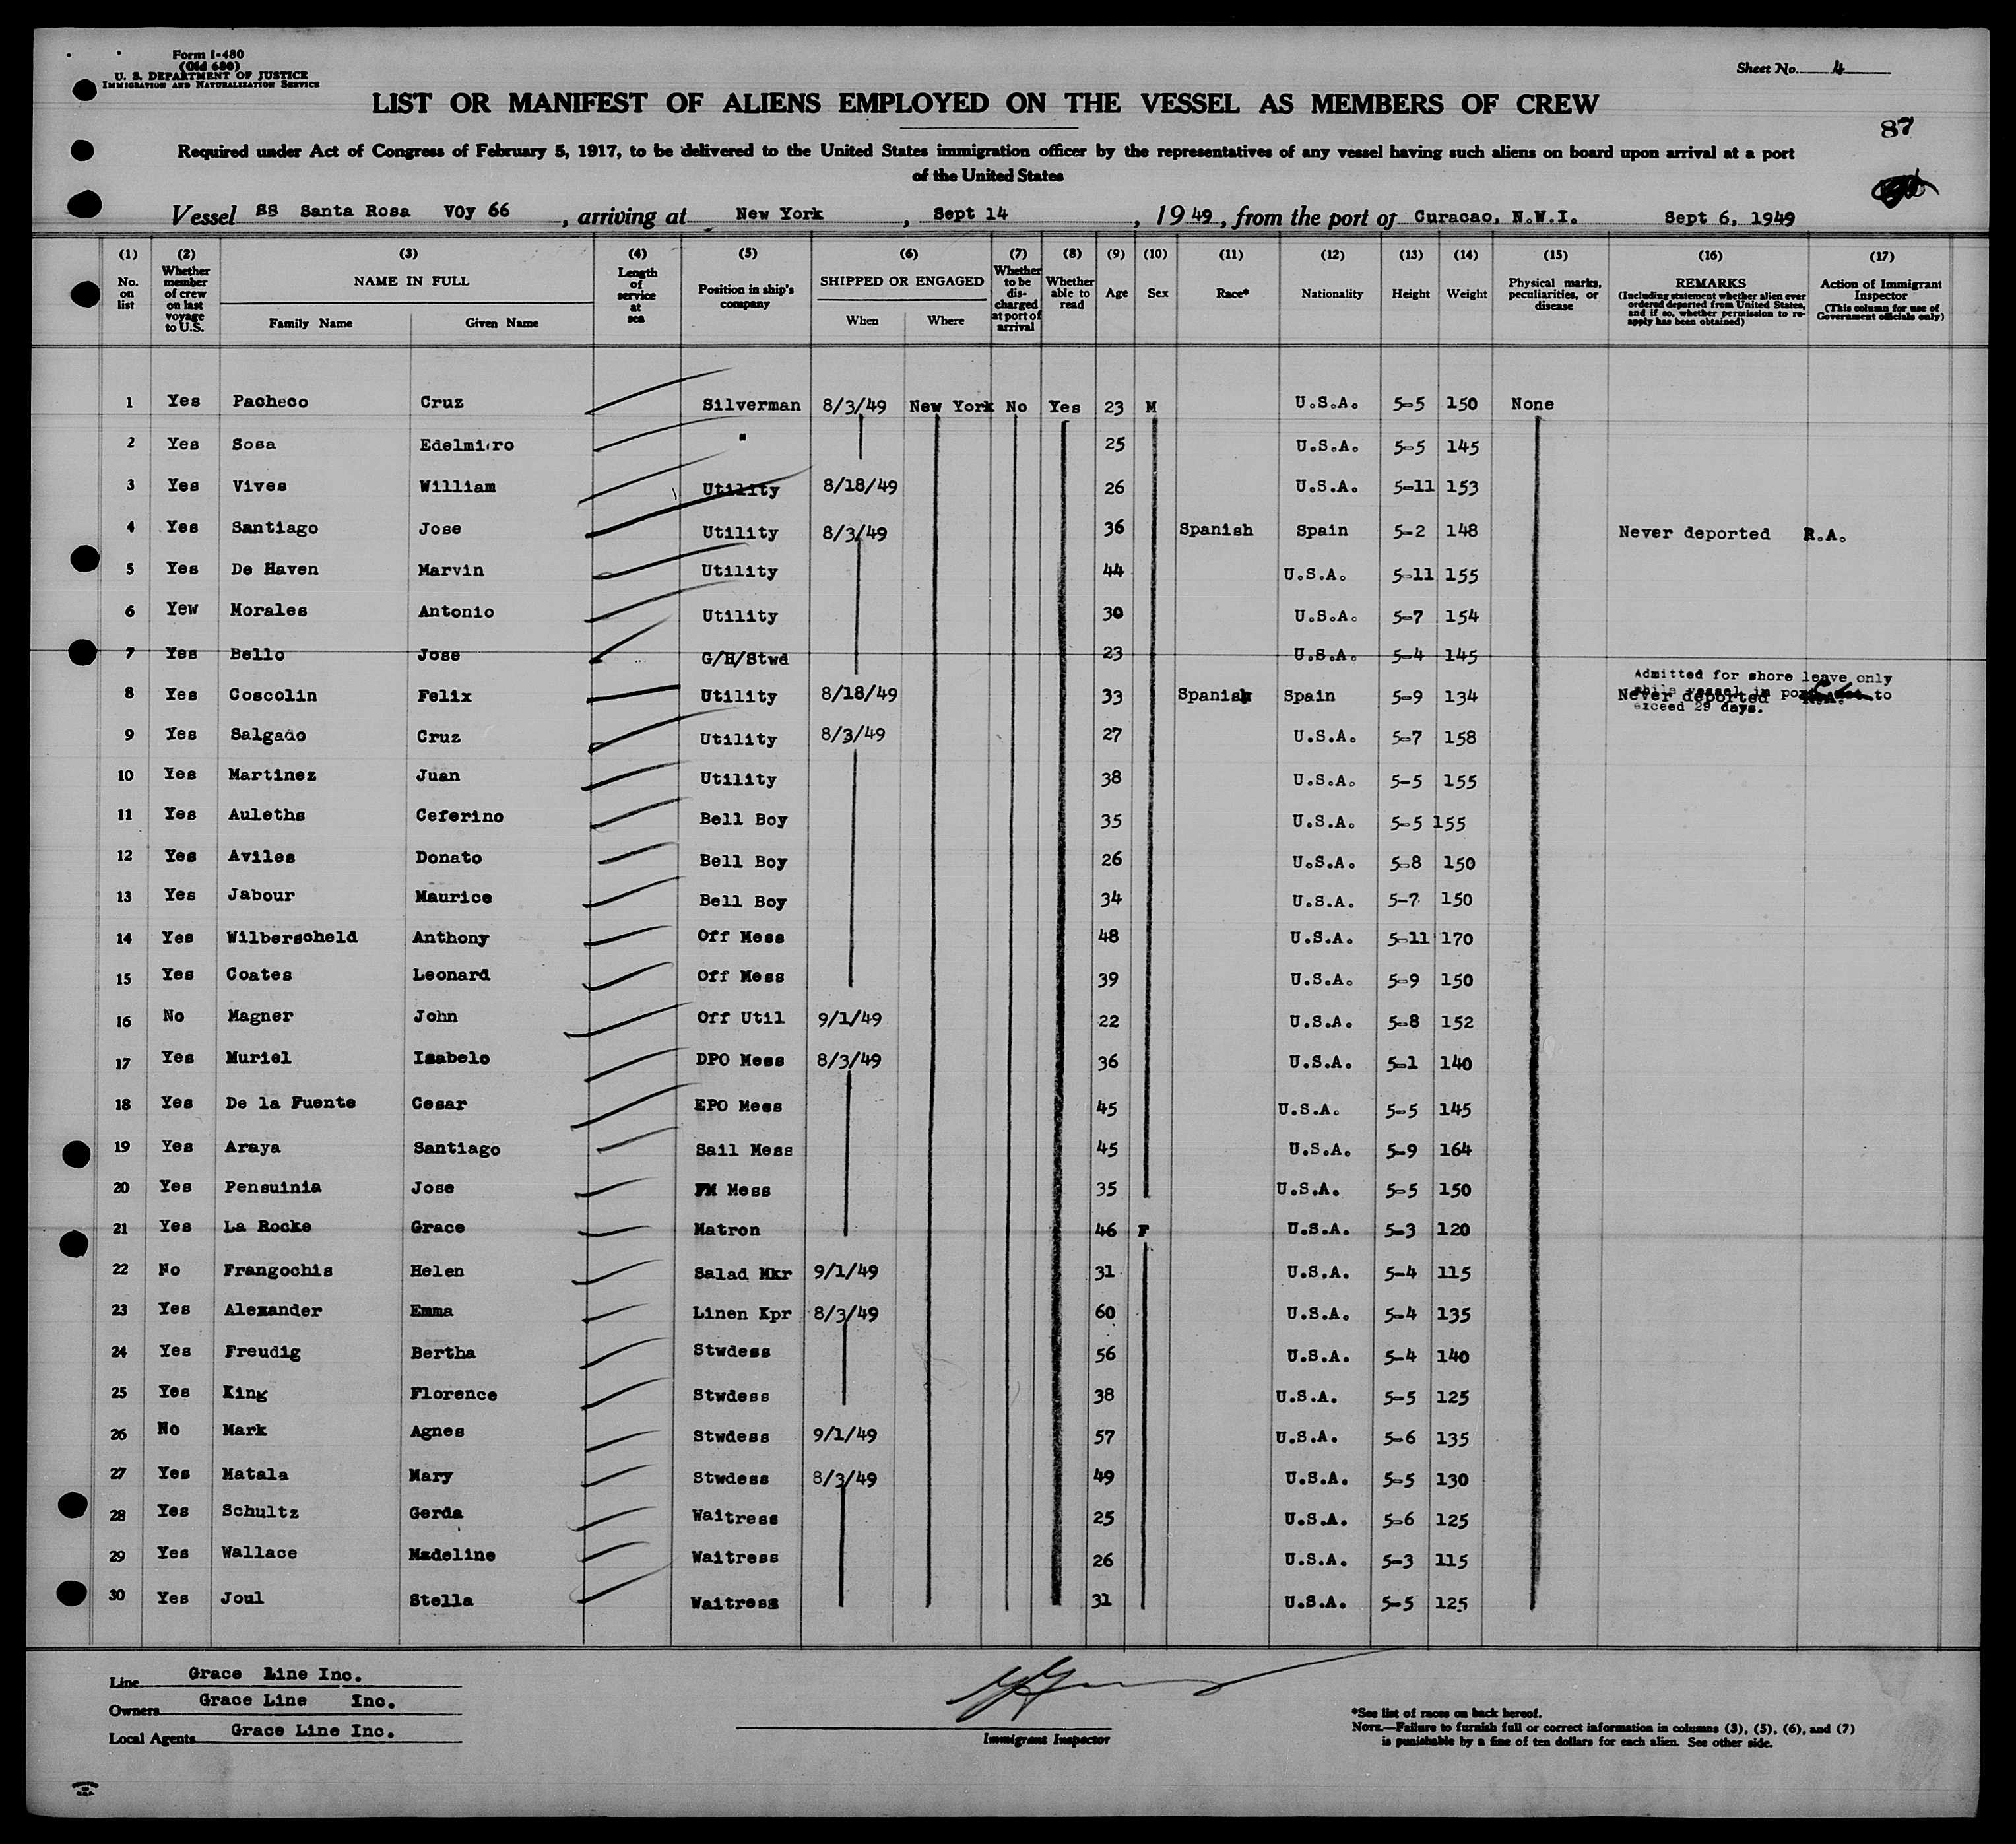 Form I-480
(Old 680)
U. S. DEPARTMENT OF JUSTICE
IMMIGRATION AND NATURALIZATION SERVICE
Sheet No. 4
LIST OR MANIFEST OF ALIENS EMPLOYED ON THE VESSEL AS MEMBERS OF CREW
87
Required under Act of Congress of February 5, 1917, to be delivered to the United States immigration officer by the representatives of any vessel having such aliens on board upon arrival at a port
of the United States
Vessel SS Santa Rosa Voy 66, arriving at New York, Sept 14, 1949, from the port of Curacao, N.W.I. Sept 6, 1949
(1) (2) (3) (4) (5) (6) (7) (8) (9) (10) (11) (12) (13) (14) (15) (16) (17)
No. on list
Whether member of crew on last voyage to U.S.
NAME IN FULL
Family Name Given Name
Length of service at sea
Position in ship's company
SHIPPED OR ENGAGED
When Where
Whether to be discharged at port of arrival
Whether able to read
Age
Sex
Race*
Nationality
Height
Weight
Physical marks, peculiarities, or disease
REMARKS
(Including statement whether alien ever ordered deported from United States, and if so, whether permission to re-apply has been obtained)
Action of Immigrant Inspector
(This column for use of Government officials only)
1 Yes Pacheco Cruz Silverman 8/3/49 New York No Yes 23 M U.S.A. 5-5 150 None
2 Yes Sosa Edelmiro " 25 U.S.A. 5-5 145
3 Yes Vives William Utility 8/18/49 26 U.S.A. 5-11 153
4 Yes Santiago Jose Utility 8/3/49 36 Spanish Spain 5-2 148 Never deported R.A.
5 Yes De Haven Marvin Utility 44 U.S.A. 5-11 155
6 Yew Morales Antonio Utility 30 U.S.A. 5-7 154
7 Yes Bello Jose G/H/Stwd 23 U.S.A. 5-4 145
8 Yes Coscolin Felix Utility 8/18/49 33 Spanish Spain 5-9 134 Never deported
Admitted for shore leave only
while vessel in port not to
exceed 29 days.
9 Yes Salgado Cruz Utility 8/3/49 27 U.S.A. 5-7 158
10 Yes Martinez Juan Utility 38 U.S.A. 5-5 155
11 Yes Auleths Ceferino Bell Boy 35 U.S.A. 5-5 155
12 Yes Aviles Donato Bell Boy 26 U.S.A. 5-8 150
13 Yes Jabour Maurice Bell Boy 34 U.S.A. 5-7 150
14 Yes Wilberscheld Anthony Off Mess 48 U.S.A. 5-11 170
15 Yes Coates Leonard Off Mess 39 U.S.A. 5-9 150
16 No Magner John Off Util 9/1/49 22 U.S.A. 5-8 152
17 Yes Muriel Isabelo DPO Mess 8/3/49 36 U.S.A. 5-1 140
18 Yes De la Fuente Cesar EPO Mess 45 U.S.A. 5-5 145
19 Yes Araya Santiago Sail Mess 45 U.S.A. 5-9 164
20 Yes Pensuinia Jose FM Mess 35 U.S.A. 5-5 150
21 Yes La Rocke Grace Matron 46 F U.S.A. 5-3 120
22 No Frangochis Helen Salad Mkr 9/1/49 31 U.S.A. 5-4 115
23 Yes Alexander Emma Linen Kpr 8/3/49 60 U.S.A. 5-4 135
24 Yes Freudig Bertha Stwdess 56 U.S.A. 5-4 140
25 Yes King Florence Stwdess 38 U.S.A. 5-5 125
26 No Mark Agnes Stwdess 9/1/49 57 U.S.A. 5-6 135
27 Yes Matala Mary Stwdess 8/3/49 49 U.S.A. 5-5 130
28 Yes Schultz Gerda Waitress 25 U.S.A. 5-6 125
29 Yes Wallace Madeline Waitress 26 U.S.A. 5-3 115
30 Yes Joul Stella Waitress 31 U.S.A. 5-5 125
Line Grace Line Inc.
Owners Grace Line Inc.
Local Agents Grace Line Inc.
Immigrant Inspector
*See list of races on back hereof.
NOTE.—Failure to furnish full or correct information in columns (3), (5), (6), and (7)
is punishable by a fine of ten dollars for each alien. See other side.